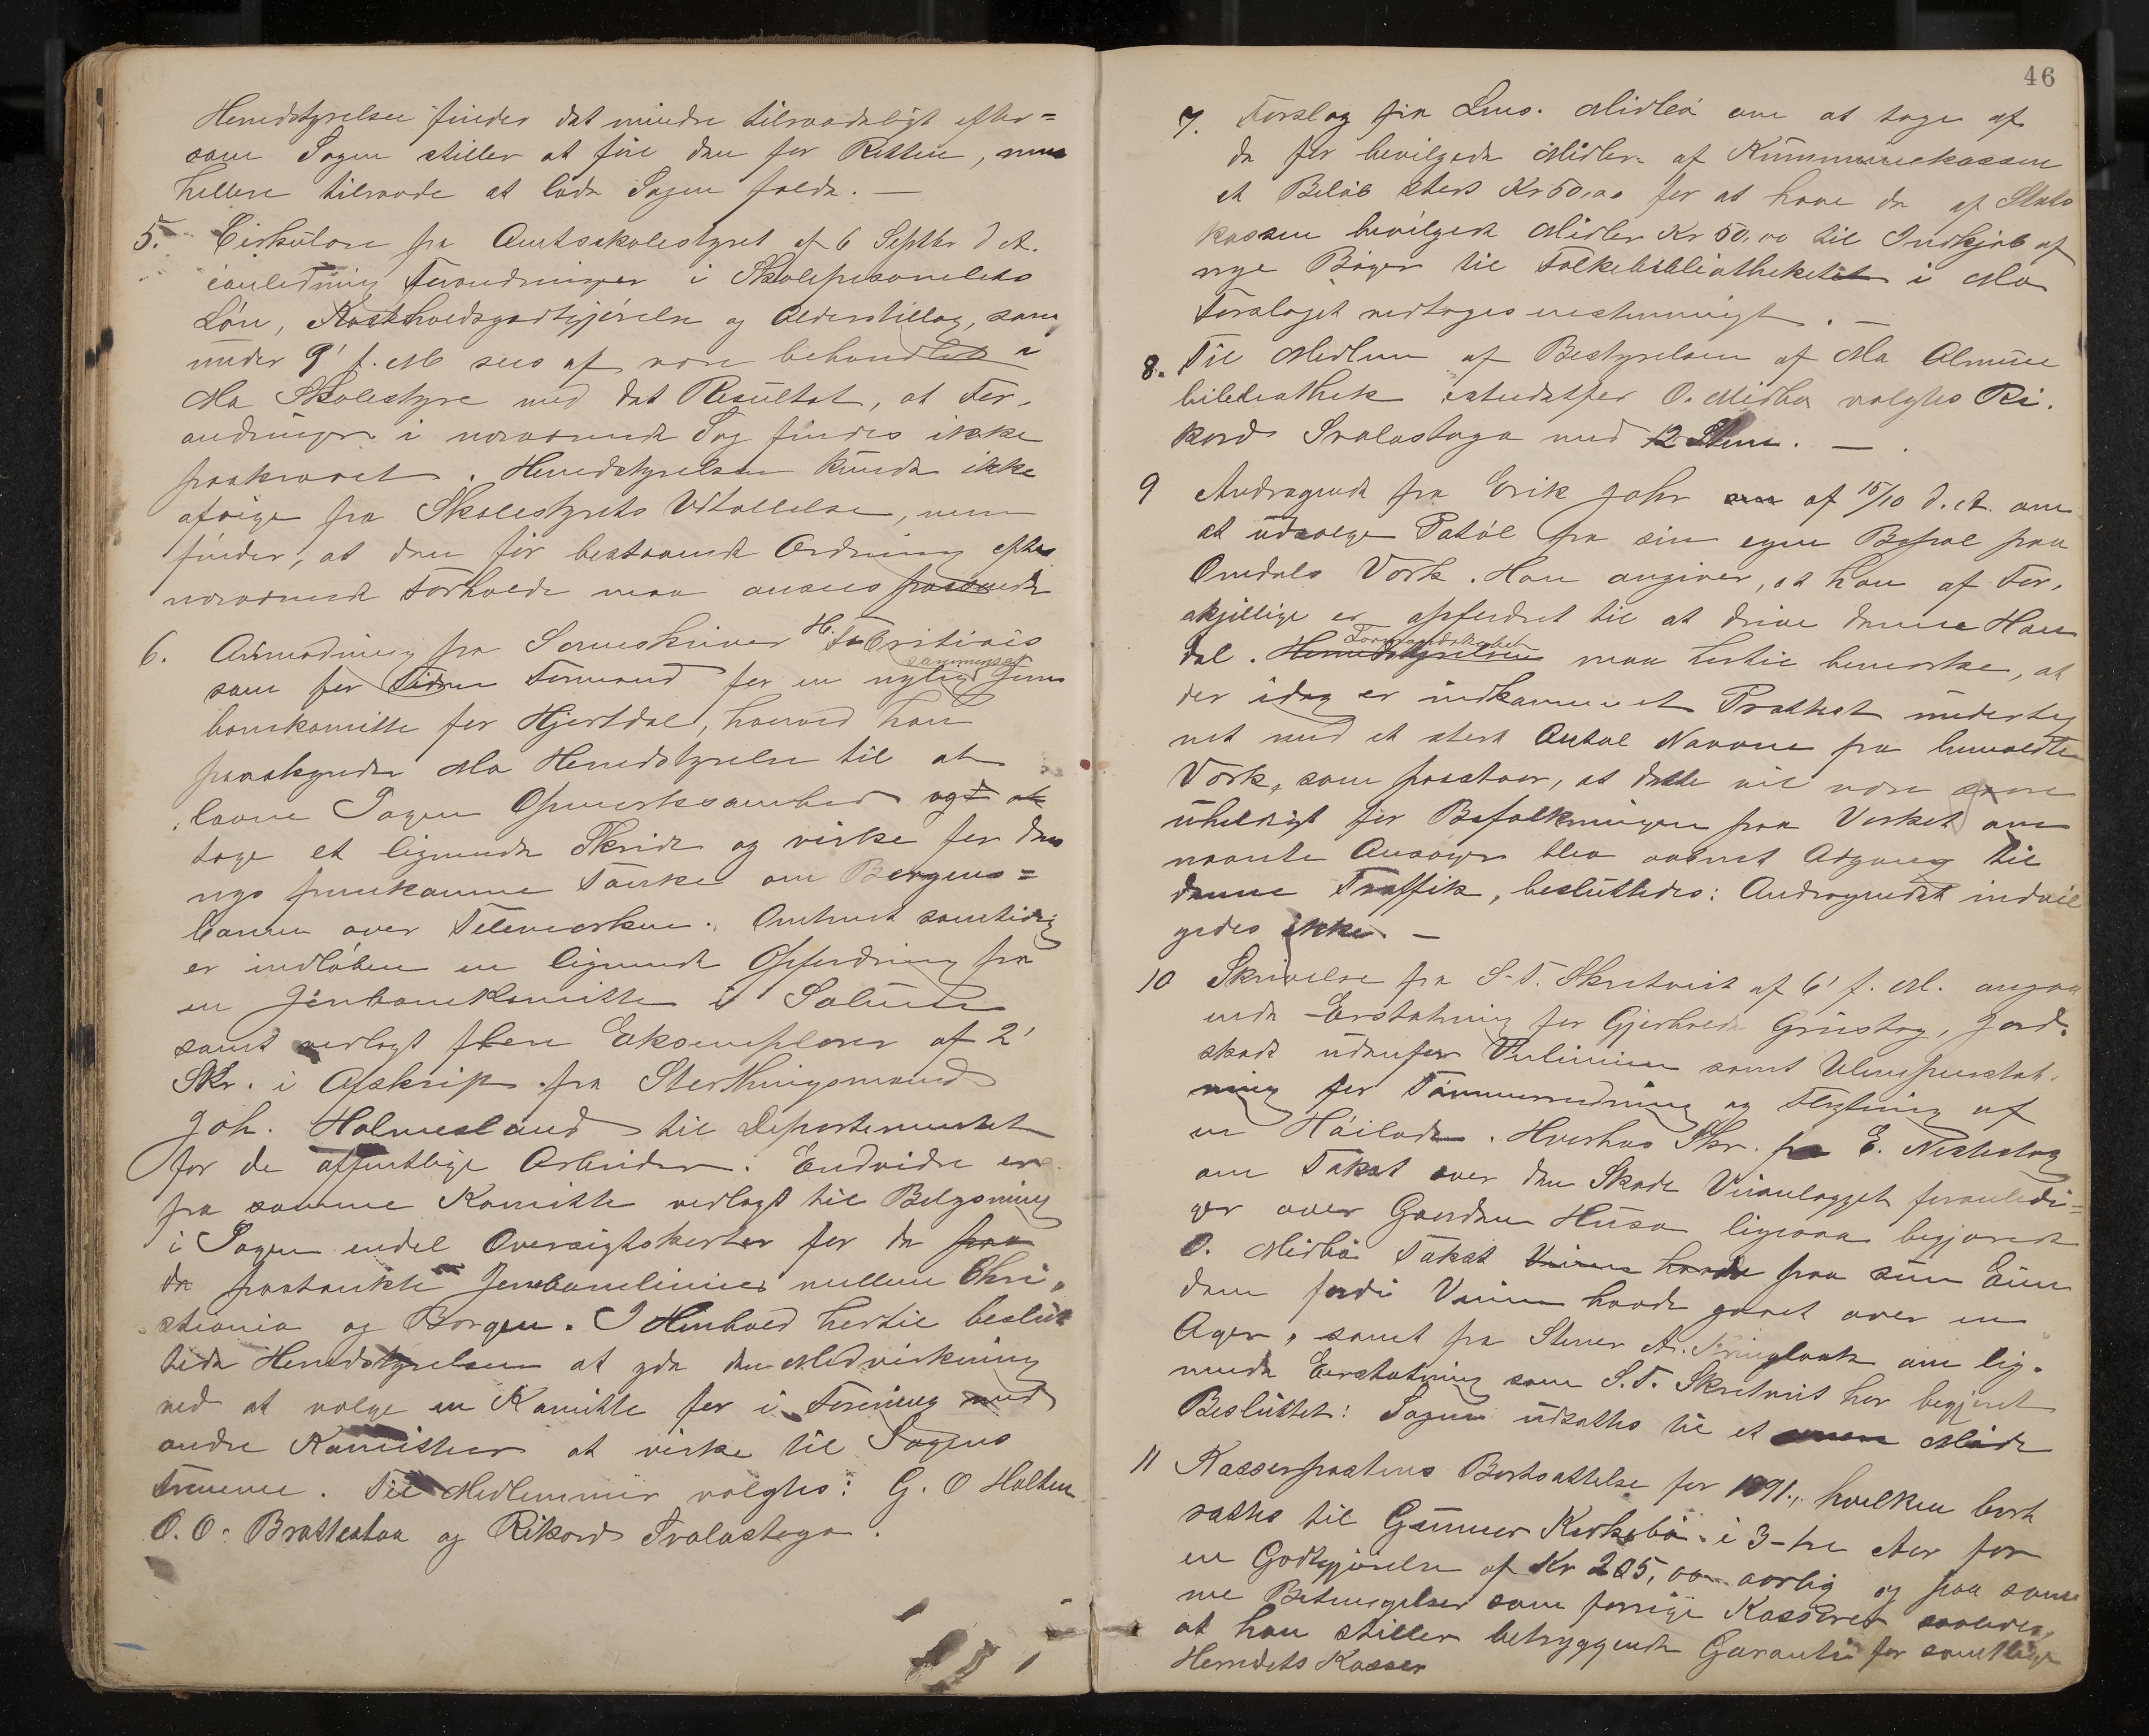 Herredstyrelsen finder det mindre tilraadeligt efter=
som Sagen stiller at före den for Retten, men
hellere tilraade at lade Sagen falde. —
5. Cirkulære fra Amtsskolestyret af 6 Septbr d. A.
i anledning Forandringer i Skolepersonalets
Løn, Kosthold­sgodtgjörelse og Alderstillæg, som
under 9' f. M. sees af være behandlet i
Mo Skolestyre med det Resultat, at For-
andringer i nærværende Sag findes ikke
paakrævet. Herredstyrelsen kunde ikke
afvige fra Skolestyrets Udtallelse, men
finder, at den för bestaaende Ordning efter
nærværende Forholde maa ansees passende
6. Anmodning fra Sorenskriver H. Fabritius
som før Tiden Formand for en nylig sammensat Jern
banekomitte for Hjertdal, hvorved han
paaskynder Mo Herredstyrelse til at
lavne Sagen Opmerksomhed og at
tage et lignende Skridt og virke for den
nye fremkomne Tanke om Bergens=
banen over Telemarken. Omtrent samtidig
er indløben en lignende Opfordring fra
en Jernbanekomitte i Solum
samt vedlagt flere Eksemplarer af 2'
Skr. i Afskrift fra Storthingsmand
Joh. Holmesland til Departementet
for de offentlige Arbeider. Endvidre er
fra samme Komitte vedlagt til Belysning
i Sagen endel Oversigtskarter for de paa
de paatænkte Jernbanelinier mellem Chri-
stiania og Bergen. I Henhold hertil beslut
tede Herredstyrelsen at yde den Medvirkning
ved at vælge en Komitte for i Forening med
andre Komitteer at virke til Sagens
Fremme. Til Medlemmer valgtes: G. O Holten
O. O. Brattestaa og Rikard Svalastoga.
46
7. Forslag fra Lens. Midbö om at tage af
de før bevilgede Midler af Kummunekassen
et Beløb stort Kr 50,00 for at have de af Stats
kassen bevilgede Midler Kr 50,00 til Indkjøb af
nye Bøger til Folkebibliotheket i Mo
Forslaget vedtages enstemmigt. —
8. Til Medlem af Bestyrelsen af Mo Almue
bibliothek istedetfor O. Midbø valgtes Ri-
kard Svalastoga med 12 Stem. —
9 Andragende fra Erik Johr af 15/10 d. A. om
at udsælge Patöl fra sin egen Bopæl paa
Omdals Værk. Han angiver, at han af For-
skjellige er opfordret til at drive denne Han
del. Herredstyrelsen Formandskabet maa hertil bemærke, at
der idag er indkommen et Protest underteg
net med et stort Antal Navne fra bemeldte
Værk, som paastaar, at dette vil være
uheldigt for Befolkningen paa Verket om
nævnte Ansøger blev aabnet Adgang til
denne Traffik, besluttedes: Andragendet indvil
gedes ikke. —
10 Skrivelse fra S. T. Skretveit af 6' f. M. angaa
ende Erstatning for Gjerhold Grustag, Jord-
skade udenfor Veilinien samt Ulempeerstat-
ning for Tømmerredning og Flytning af
en Höilade. Hverhos Skr. fra E. Nistestog
om Takst over den Skade Veianlægget foranledi=
ger over Gaarden Huso ligesaa begjærede
O. Midbö Takst Veien havde paa sin Eien
dom fordi Veien havde gaaet over en
Ager, samt fra Stener A. Kringlaak om lig-
nende Erstatning som S. T. Skretveit har begjæret
Besluttet: Sagen udsattes til et Møde
11 Kasserpostens Bortsættelse for 1891, hvilken bort
sattes til Gunner Kirkebø i 3-tre Aar for
en Godtgjörelse af Kr 205,00 aarlig og paa samme
me Betingelser som forrige Kasserer saaledes
at han stiller betryggende Garanti for samtlige
Herredets Kasser